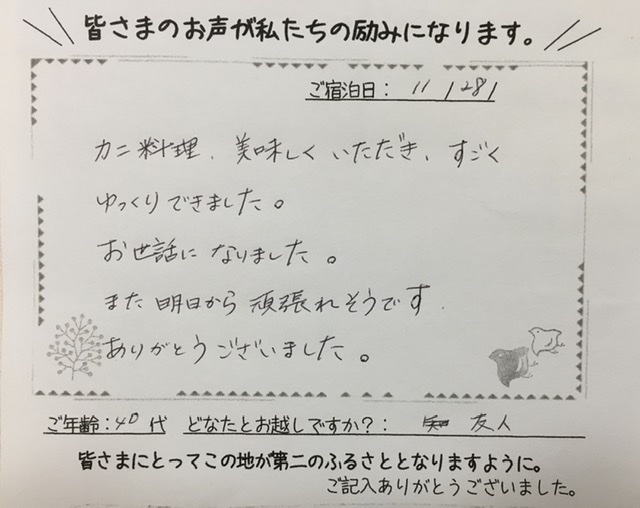 皆さまのお声が私たちの励みになります。
ご宿泊日: 11/28/
カニ料理、美味しくいただき、すごく
ゆっくりできました。
お世話になりました。
また明日から頑張れそうです.
ありがとうございました。
ご年齢:40代 どなたとお越しですか?: 友人
皆さまにとってこの地が第二のふるさととなりますように。
ご記入ありがとうございました。